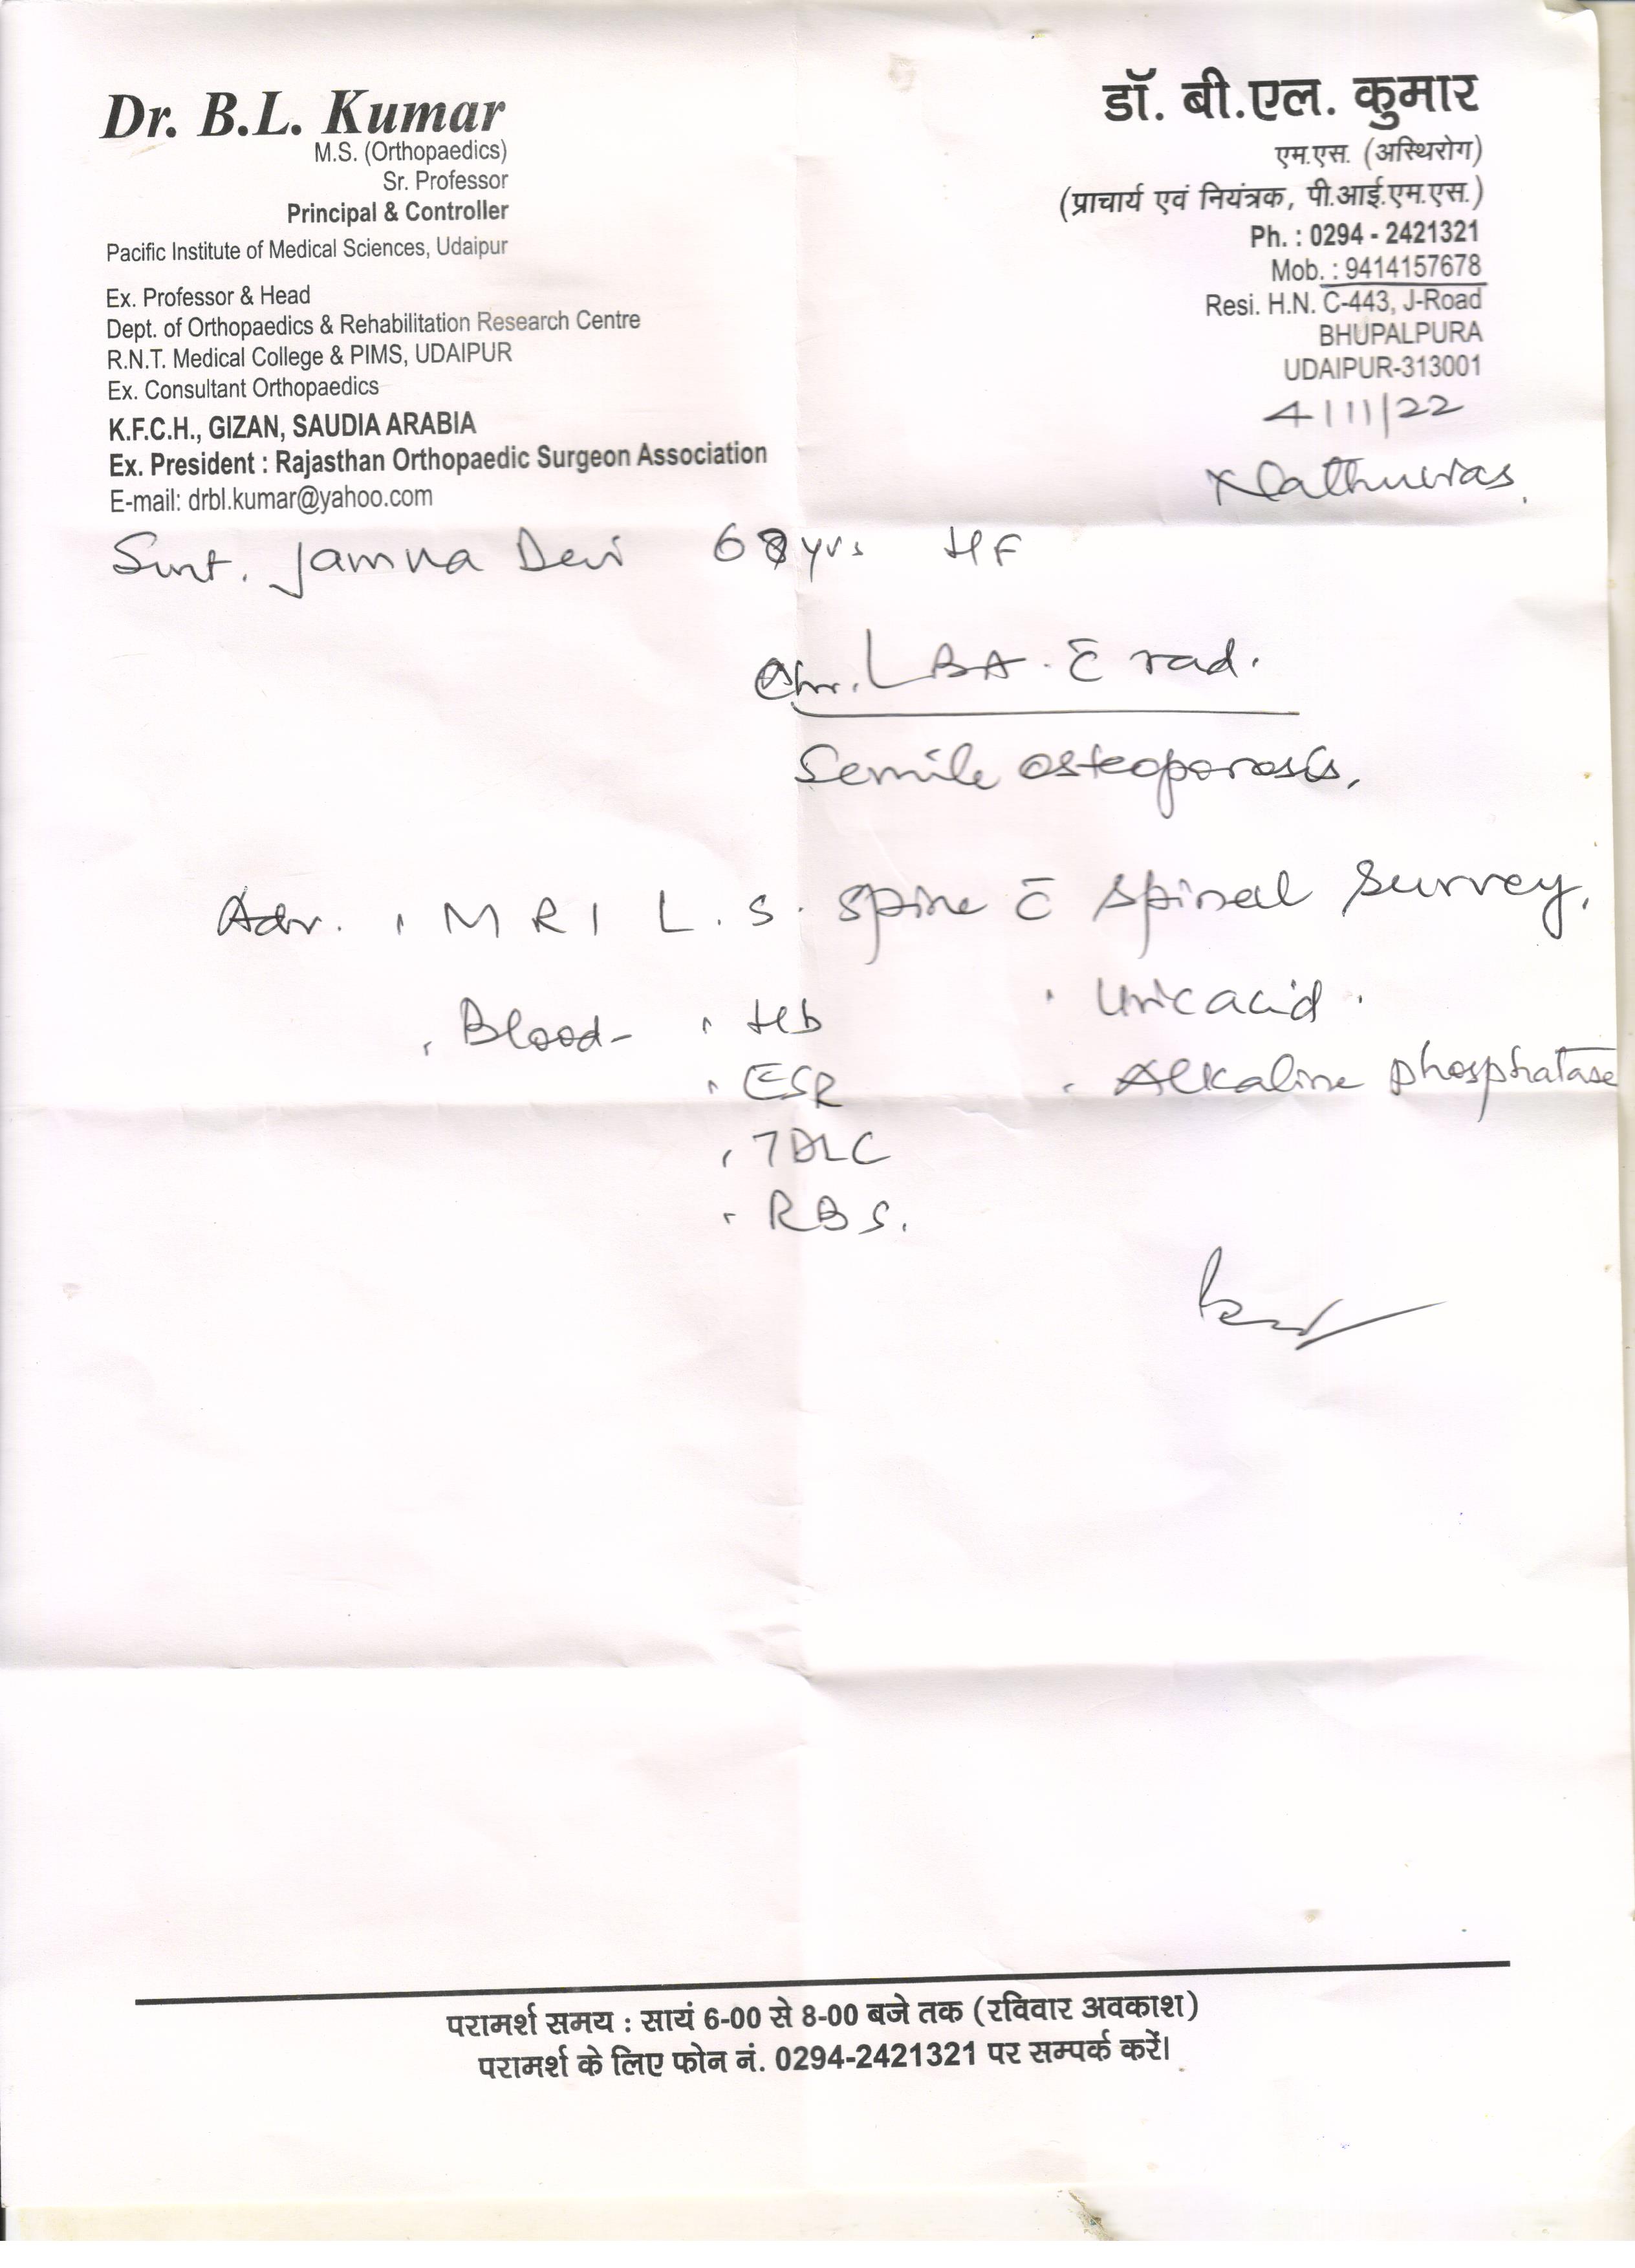 Dr. B.L. Kumar
M.S. (Orthopaedics)
Sr. Professor
Principal & Controller
Pacific Institute of Medical Sciences, Udaipur
Ex. Professor & Head
Dept. of Orthopaedics & Rehabilitation Research Centre
R.N.T. Medical College & PIMS, UDAIPUR
Ex. Consultant Orthopaedics
K.F.C.H., GIZAN, SAUDIA ARABIA
Ex. President : Rajasthan Orthopaedic Surgeon Association
E-mail: drbl.kumar@yahoo.com
डॉ. बी.एल. कुमार
एम.एस. (अस्थिरोग)
(प्राचार्य एवं नियंत्रक, पी.आई.एम.एस.)
Ph. : 0294 - 2421321
Mob. : 9414157678
Resi. H.N. C-443, J-Road
BHUPALPURA
UDAIPUR-313001
4/11/22
Smt. Jamna Devi yrs HF
Chr. LBA. c̄ rad.
Senile osteoporosis.
Adv. MRI L.S. spine c̄ spinal survey.
Blood - Hb
ESR
TDLC
RBS.
Uric acid.
Alkaline phosphatase
परामर्श समय : सायं 6-00 से 8-00 बजे तक (रविवार अवकाश)
परामर्श के लिए फोन नं. 0294-2421321 पर सम्पर्क करें।